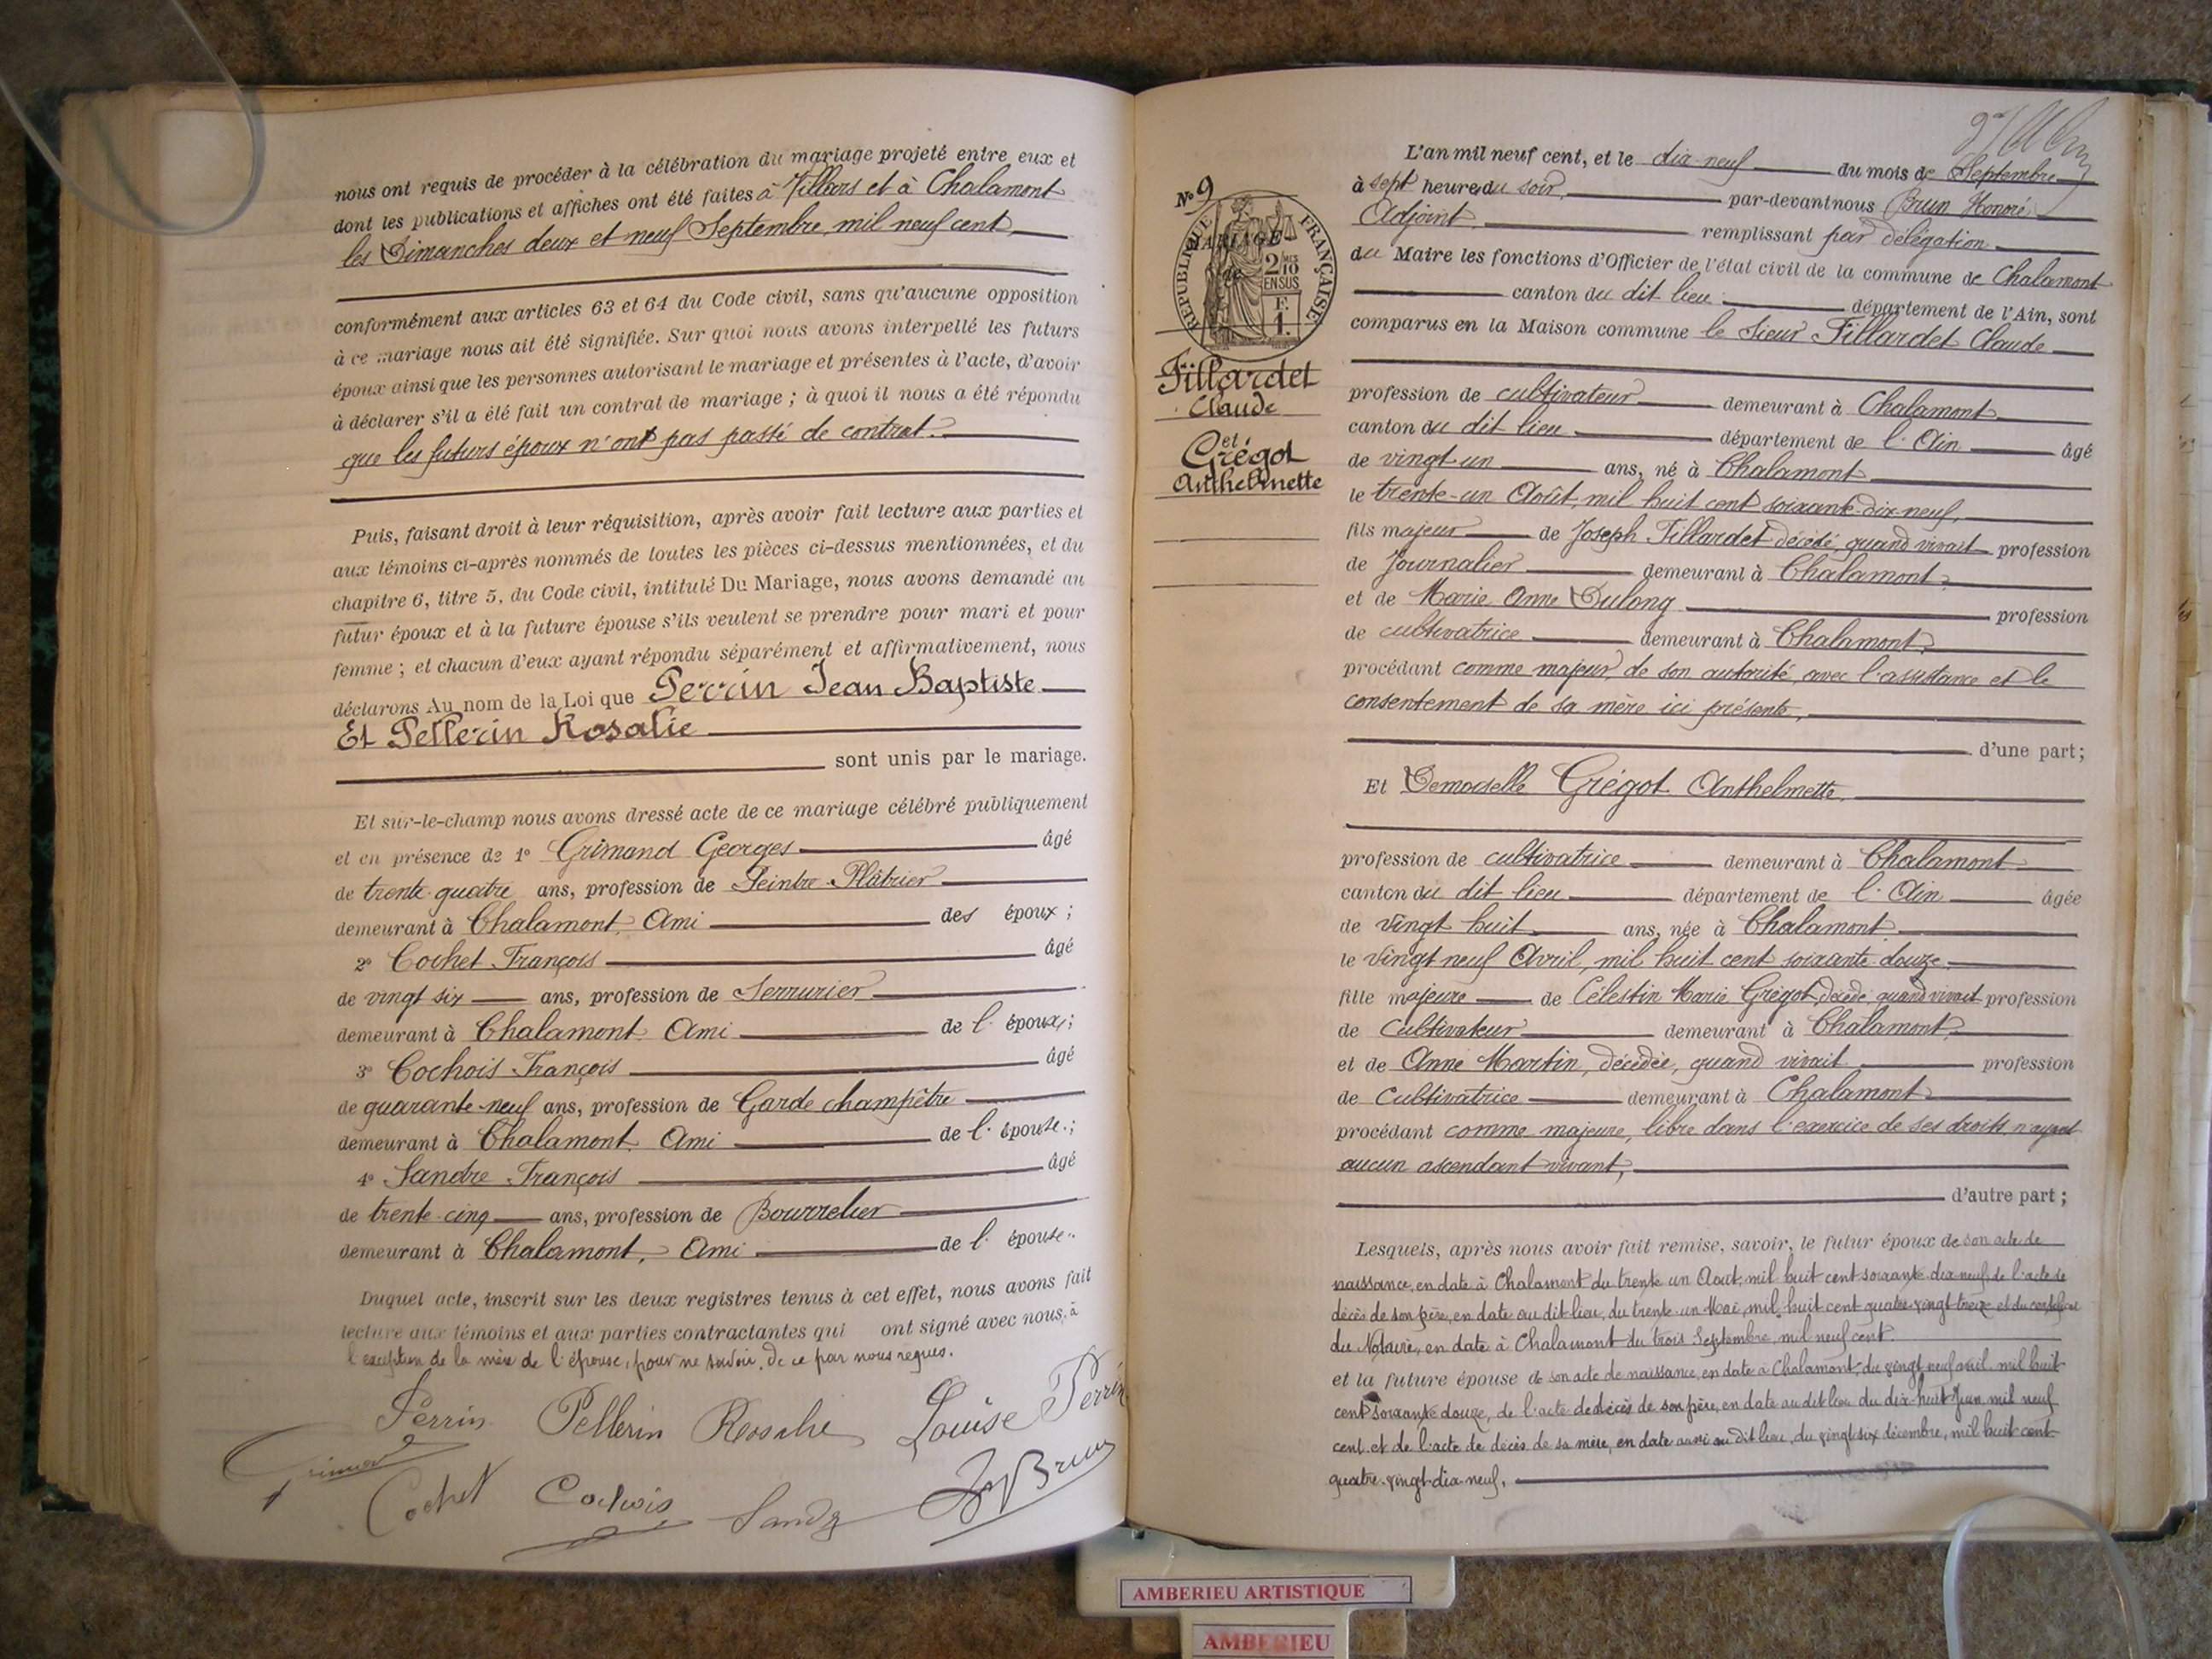 nous ont requis de procéder à la célébration du mariage projeté entre eux et
dont les publications et affiches ont été faites à Villars et à Chalamont
les Dimanches deux et neuf Septembre mil neuf cent
conformément aux articles 63 et 64 du Code civil, sans qu'aucune opposition
à ce mariage nous ait été signifiée. Sur quoi nous avons interpellé les futurs
époux ainsi que les personnes autorisant le mariage et présentes à l'acte, d'avoir
à déclarer s'il a été fait un contrat de mariage ; à quoi il nous a été répondu
que les futurs époux n'ont pas passé de contrat.
Puis, faisant droit à leur réquisition, après avoir fait lecture aux parties et
aux témoins ci-après nommés de toutes les pièces ci-dessus mentionnées, et du
chapitre 6, titre 5, du Code civil, intitulé Du Mariage, nous avons demandé au
futur époux et à la future épouse s'ils veulent se prendre pour mari et pour
femme ; et chacun d'eux ayant répondu séparément et affirmativement, nous
déclarons Au nom de la Loi que Perrin Jean Baptiste
Et Pellerin Rosalie
sont unis par le mariage.
Et sur-le-champ nous avons dressé acte de ce mariage célébré publiquement
et en présence de 1° Grimand Georges âgé
de trente quatre ans, profession de Peintre Plâtrier
demeurant à Chalamont, Ami des époux ;
2° Cochet François âgé
de vingt six ans, profession de Serrurier
demeurant à Chalamont Ami de l' époux ;
3° Cochois François âgé
de quarante-neuf ans, profession de Garde champêtre
demeurant à Chalamont, Ami de l' épouse ;
4° Sandre François âgé
de trente-cinq ans, profession de Bourrelier
demeurant à Chalamont, Ami de l' épouse.
Duquel acte, inscrit sur les deux registres tenus à cet effet, nous avons fait
lecture aux témoins et aux parties contractantes qui ont signé avec nous, à
l'exception de la mère de l'épouse, pour ne savoir, de ce par nous requis.
Perrin Pellerin Rosalie Louise Perrin
Grimand
Cochet Cochois Sandre Hré Brun
N° 9
RÉPUBLIQUE FRANÇAISE
MARIAGE
de
2/10
EN SUS
Fillardet
Claude
et
Grégot
Anthelmette
L'an mil neuf cent, et le dix-neuf du mois de Septembre
à sept heures du soir, par-devant nous Brun Honoré
Adjoint, remplissant par délégation
du Maire les fonctions d'Officier de l'état civil de la commune de Chalamont
canton du dit lieu département de l'Ain, sont
comparus en la Maison commune le Sieur Fillardet Claude
profession de cultivateur demeurant à Chalamont
canton du dit lieu département de l'Ain âgé
de vingt-un ans, né à Chalamont
le trente-un Août, mil huit cent soixante-dix-neuf,
fils majeur de Joseph Fillardet décédé, quand vivait profession
de Journalier demeurant à Chalamont,
et de Marie Anne Dulong profession
de cultivatrice demeurant à Chalamont,
procédant comme majeur, de son autorité, avec l'assistance et le
consentement de sa mère ici présente,
d'une part;
Et Demoiselle Grégot Anthelmette,
profession de cultivatrice demeurant à Chalamont
canton du dit lieu département de l'Ain âgée
de vingt huit ans, née à Chalamont
le vingt neuf Avril, mil huit cent soixante-douze,
fille majeure de Célestin Marie Grégot, décédé, quand vivait profession
de Cultivateur demeurant à Chalamont,
et de Anne Martin, décédée, quand vivait profession
de Cultivatrice demeurant à Chalamont
procédant comme majeure, libre dans l'exercice de ses droits, n'ayant
aucun ascendant vivant,
d'autre part ;
Lesquels, après nous avoir fait remise, savoir, le futur époux de son acte de
naissance, en date à Chalamont du trente un Août, mil huit cent soixante-dix-neuf, de l'acte de
décès de son père, en date au dit lieu, du trente-un Mai, mil huit cent quatre-vingt treize et du certificat
du Notaire, en date à Chalamont du trois Septembre mil neuf cent.
et la future épouse de son acte de naissance, en date à Chalamont, du vingt neuf avril mil huit
cent soixante douze, de l'acte de décès de son père, en date au dit lieu du dix-huit Juin mil neuf
cent et de l'acte de décès de sa mère, en date aussi au dit lieu, du vingt six décembre, mil huit cent
quatre-vingt-dix-neuf,
AMBERIEU ARTISTIQUE
AMBERIEU